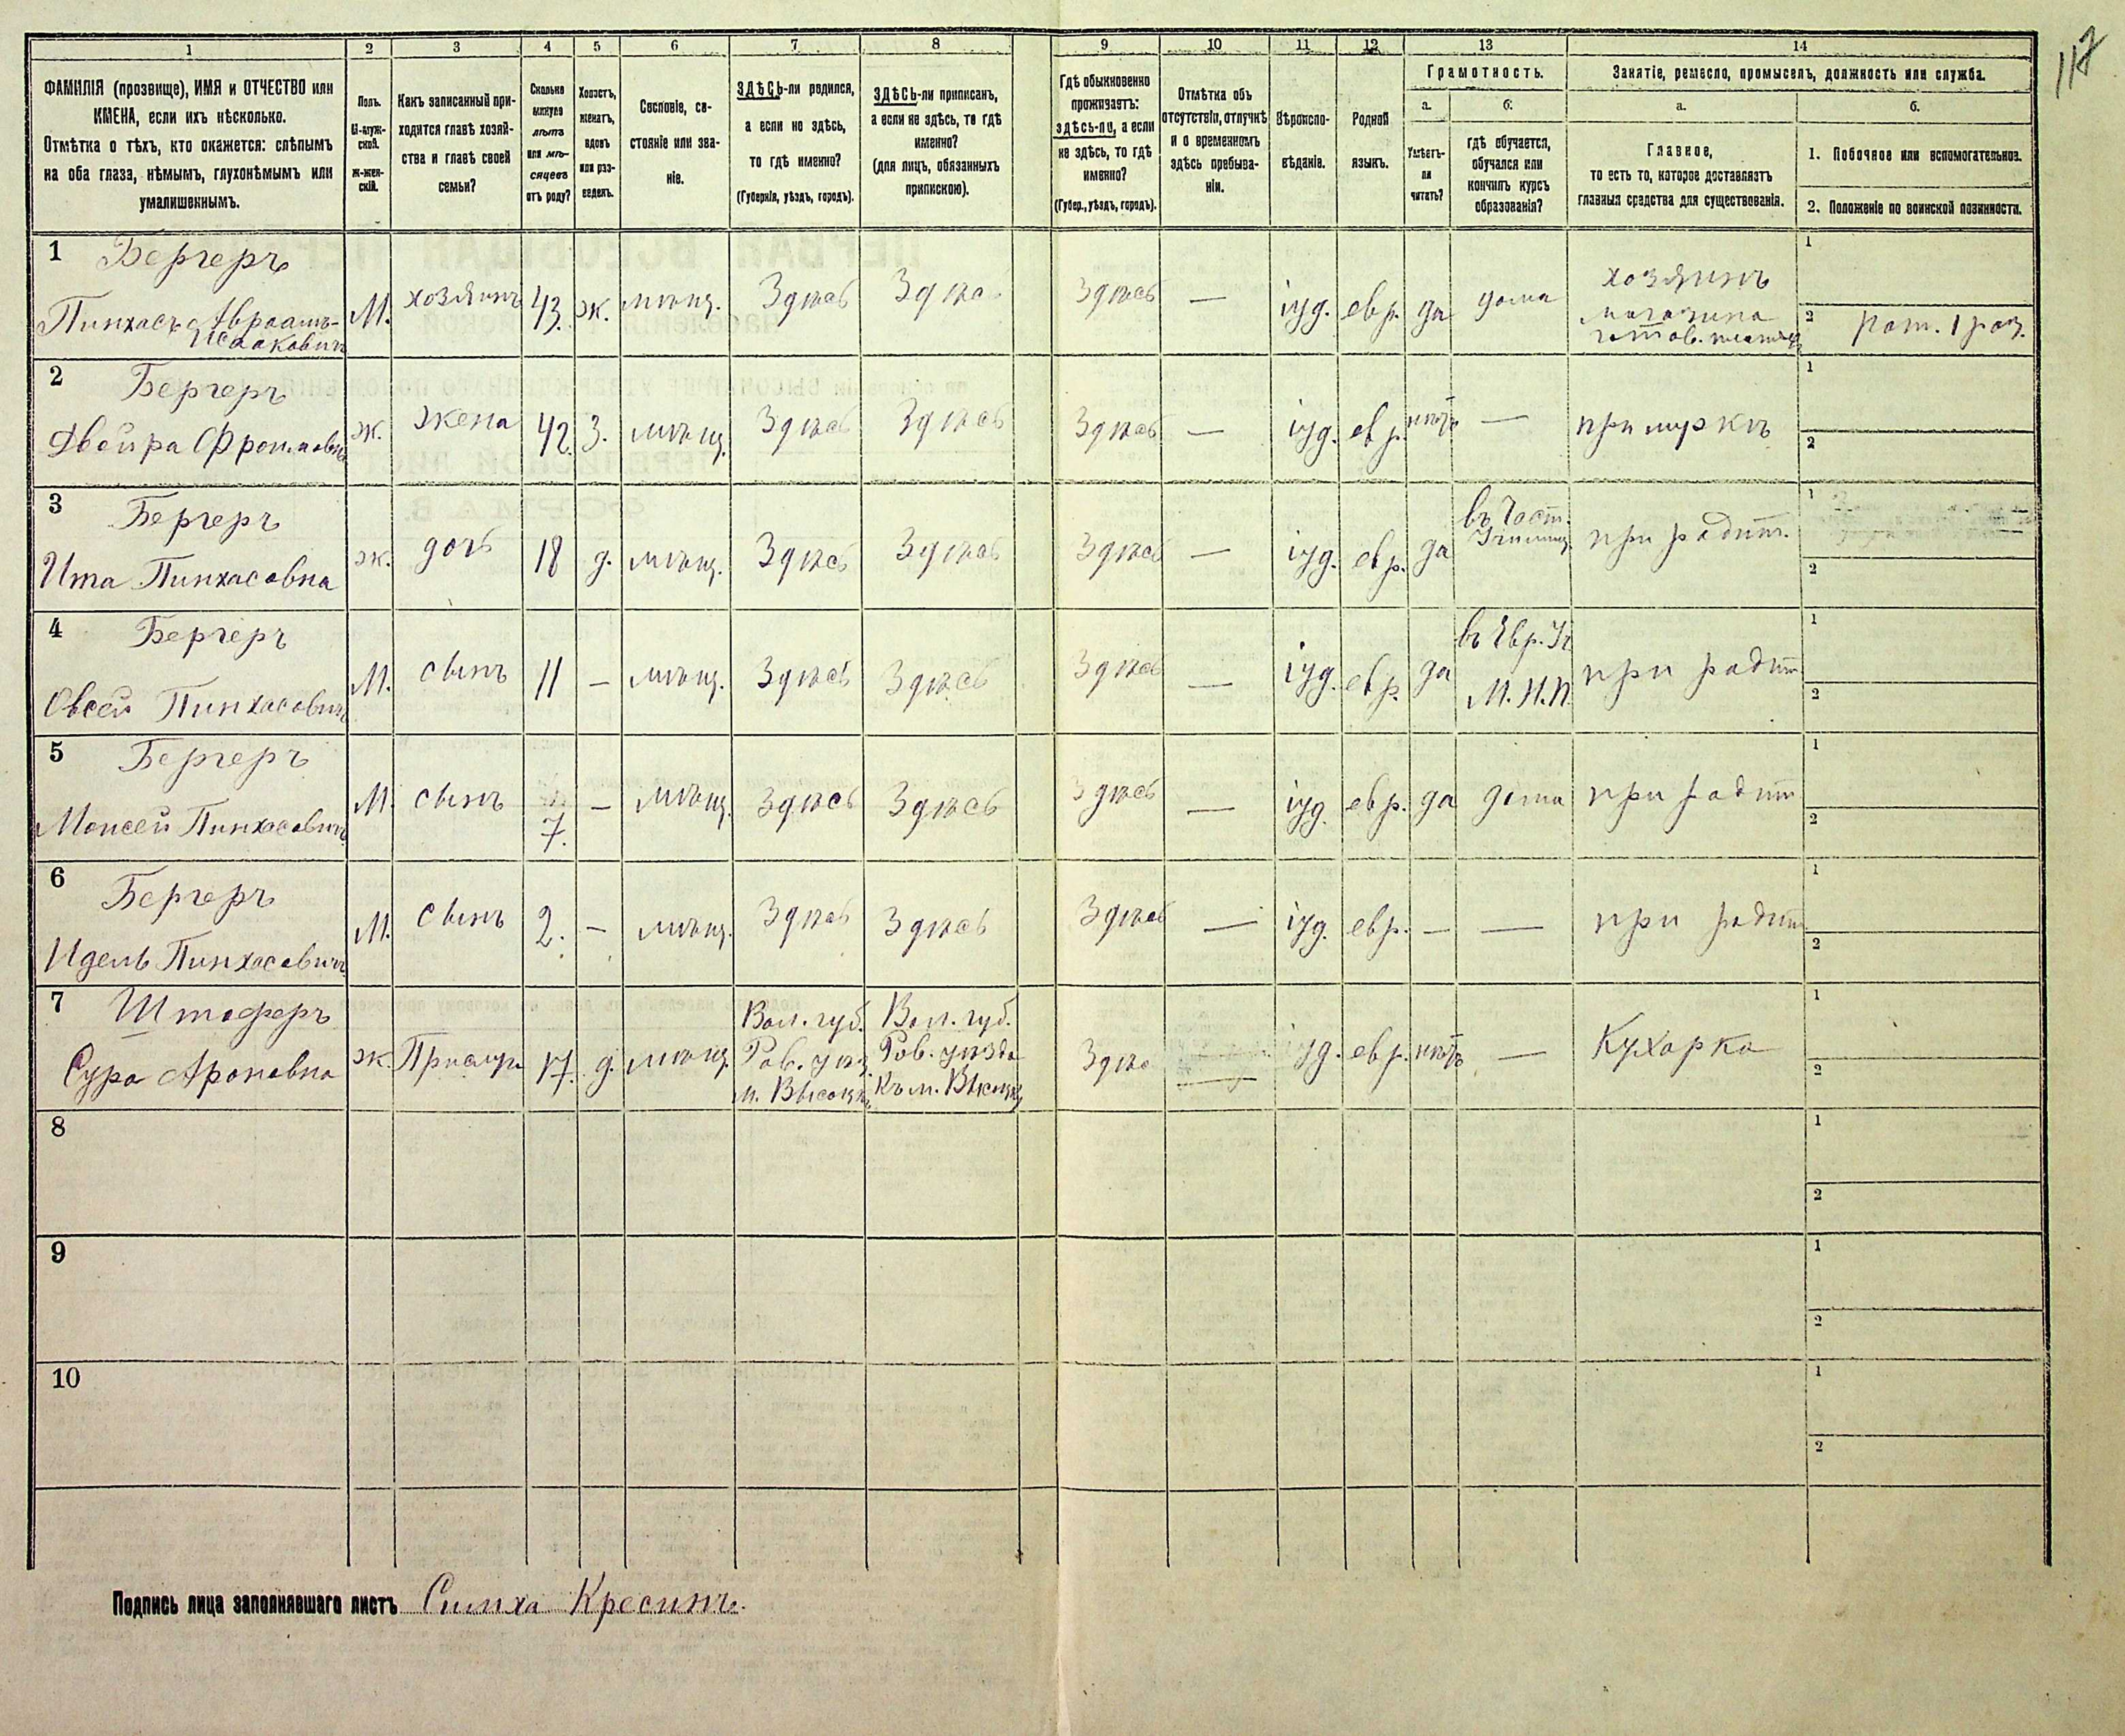 117
1 2 3 4 5 6 7 8 9 10 11 12 13 14
ФАМИЛІЯ (прозвище), ИМЯ и ОТЧЕСТВО или
ИМЕНА, если ихъ нѣсколько.
Отмѣтка о тѣхъ, кто окажется: слѣпымъ
на оба глаза, нѣмымъ, глухонѣмымъ или
умалишеннымъ.
Полъ.
М-муж-
ской.
ж-жен-
скій.
Какъ записанный при-
ходится главѣ хозяй-
ства и главѣ своей
семьи?
Сколько
минуло
лѣтъ
или мѣ-
сяцевъ
отъ роду?
Холостъ,
женатъ,
вдовъ
или раз-
веденъ.
Сословіе, со-
стояніе или зва-
ніе.
ЗДѢСЬ-ли родился,
а если не здѣсь,
то гдѣ именно?
(Губернія, уѣздъ, городъ).
ЗДѢСЬ-ли приписанъ,
а если не здѣсь, то гдѣ
именно?
(для лицъ, обязанныхъ
припискою).
Гдѣ обыкновенно
проживаетъ:
здѣсь-ли, а если
не здѣсь, то гдѣ
именно?
(Губер., уѣздъ, городъ).
Отмѣтка объ
отсутствіи, отлучкѣ
и о временномъ
здѣсь пребыва-
ніи.
Вѣроиспо-
вѣданіе.
Родной
языкъ.
Грамотность.
а.
Умѣетъ-
ли
читать?
б.
гдѣ обучается,
обучался или
кончилъ курсъ
образованія?
Занятіе, ремесло, промыселъ, должность или служба.
а.
Главное,
то есть то, которое доставляетъ
главныя средства для существованія.
б.
1. Побочное или вспомогательное.
2. Положеніе по воинской повинности.
1 Бергеръ
Пинхасъ Авраамъ-
Исааковичъ
М. хозяинъ 43. ж. мѣщ. Здѣсь Здѣсь Здѣсь — іуд. евр. да дома
хозяинъ
магазина
готов. платья
1
2 рат. 1 раз.
2 Бергеръ
Двейра Фроимовна
ж. жена 42. З. мѣщ. Здѣсь Здѣсь Здѣсь — іуд. евр. нѣтъ — при мужѣ
1
2
3 Бергеръ
Ита Пинхасовна
ж. дочь 18 д. мѣщ. Здѣсь Здѣсь Здѣсь — іуд. евр. да
въ Част.
Училищ.
при родит.
1
2
4 Бергеръ
Овсей Пинхасовичъ
М. сынъ 11 — мѣщ. Здѣсь Здѣсь Здѣсь — іуд. евр. да
въ Евр. Уч
М. Н. П.
при родит
1
2
5 Бергеръ
Моисей Пинхасовичъ
М. сынъ 7. — мѣщ. Здѣсь Здѣсь Здѣсь — іуд. евр. да дома при родит
1
2
6 Бергеръ
Идель Пинхасовичъ
М. сынъ 2. — мѣщ. Здѣсь Здѣсь Здѣсь — іуд. евр. — — при родит
1
2
7 Штоферъ
Сура Ароновна
ж. Прислуг 17. д. мѣщ.
Вол. губ.
Ров. уѣз.
м. Высоцкъ
Вол. губ.
Ров. уѣзда
Къ м. Высоцку
Здѣс іуд. евр. нѣтъ — Кухарка
1
2
8
1
2
9
1
2
10
1
2
Подпись лица заполнявшаго листъ Симха Кресинъ.